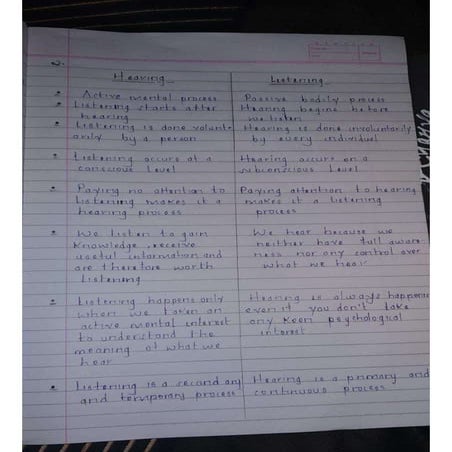 2.
Hearing
Listening
Active mental process
Passive bodily process
Listening starts after
hearing
Hearing begins before
we listen
Listening is done volunt
arily by a person
Hearing is done involuntarily
by every individual
Listening occurs at a
conscious level
Hearing occurs on a
subconscious level
Paying no attention to
listening makes it a
hearing process
Paying attention to hearing
makes it a listening
process
We listen to gain
knowledge, receive
useful information and
are therefore worth
listening
We hear because we
neither have full aware
ness nor any control over
what we hear
Listening happens only
when we taken an
active mental interest
to understand the
meaning of what we
hear
Hearing is always happening
even if you don't take
any keen psychological
interest
Listening is a second ary
and temporary process
Hearing is a primary and
continuous process